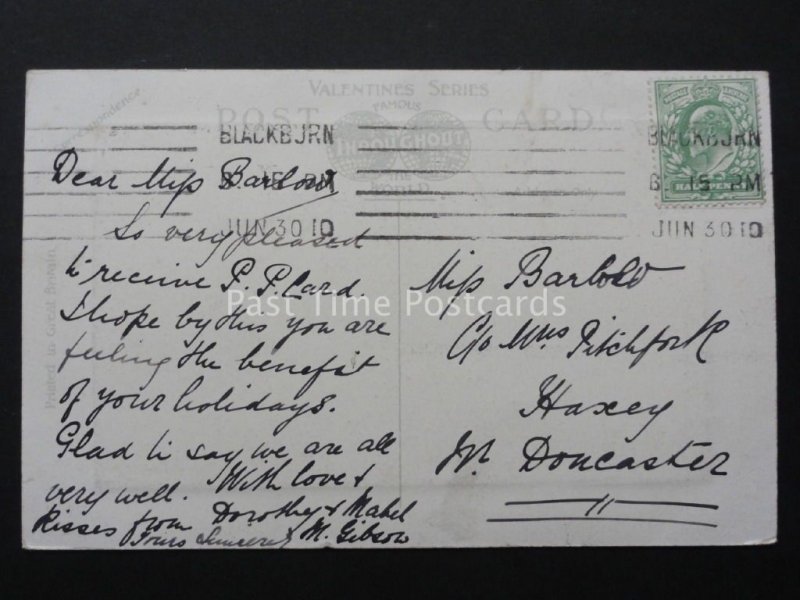 VALENTINES SERIES
POST CARD
FAMOUS
THROUGHOUT
THE
WORLD
Correspondence
Address Only
Printed in Great Britain
BLACKBURN
8 15 PM
JUN 30 10
BLACKBURN
8 15 PM
JUN 30 10
POSTAGE REVENUE
HALFPENNY
Dear Miss Barlow
So very pleased
to receive P. P. Card.
I hope by this you are
feeling the benefit
of your holidays.
Glad to say we are all
very well. With love &
kisses from Dorothy & Mabel
Yours Sincerely M. Gibson
Miss Barlow
C/o Mrs Pitchfork
Haxey
Nr Doncaster
Past Time Postcards